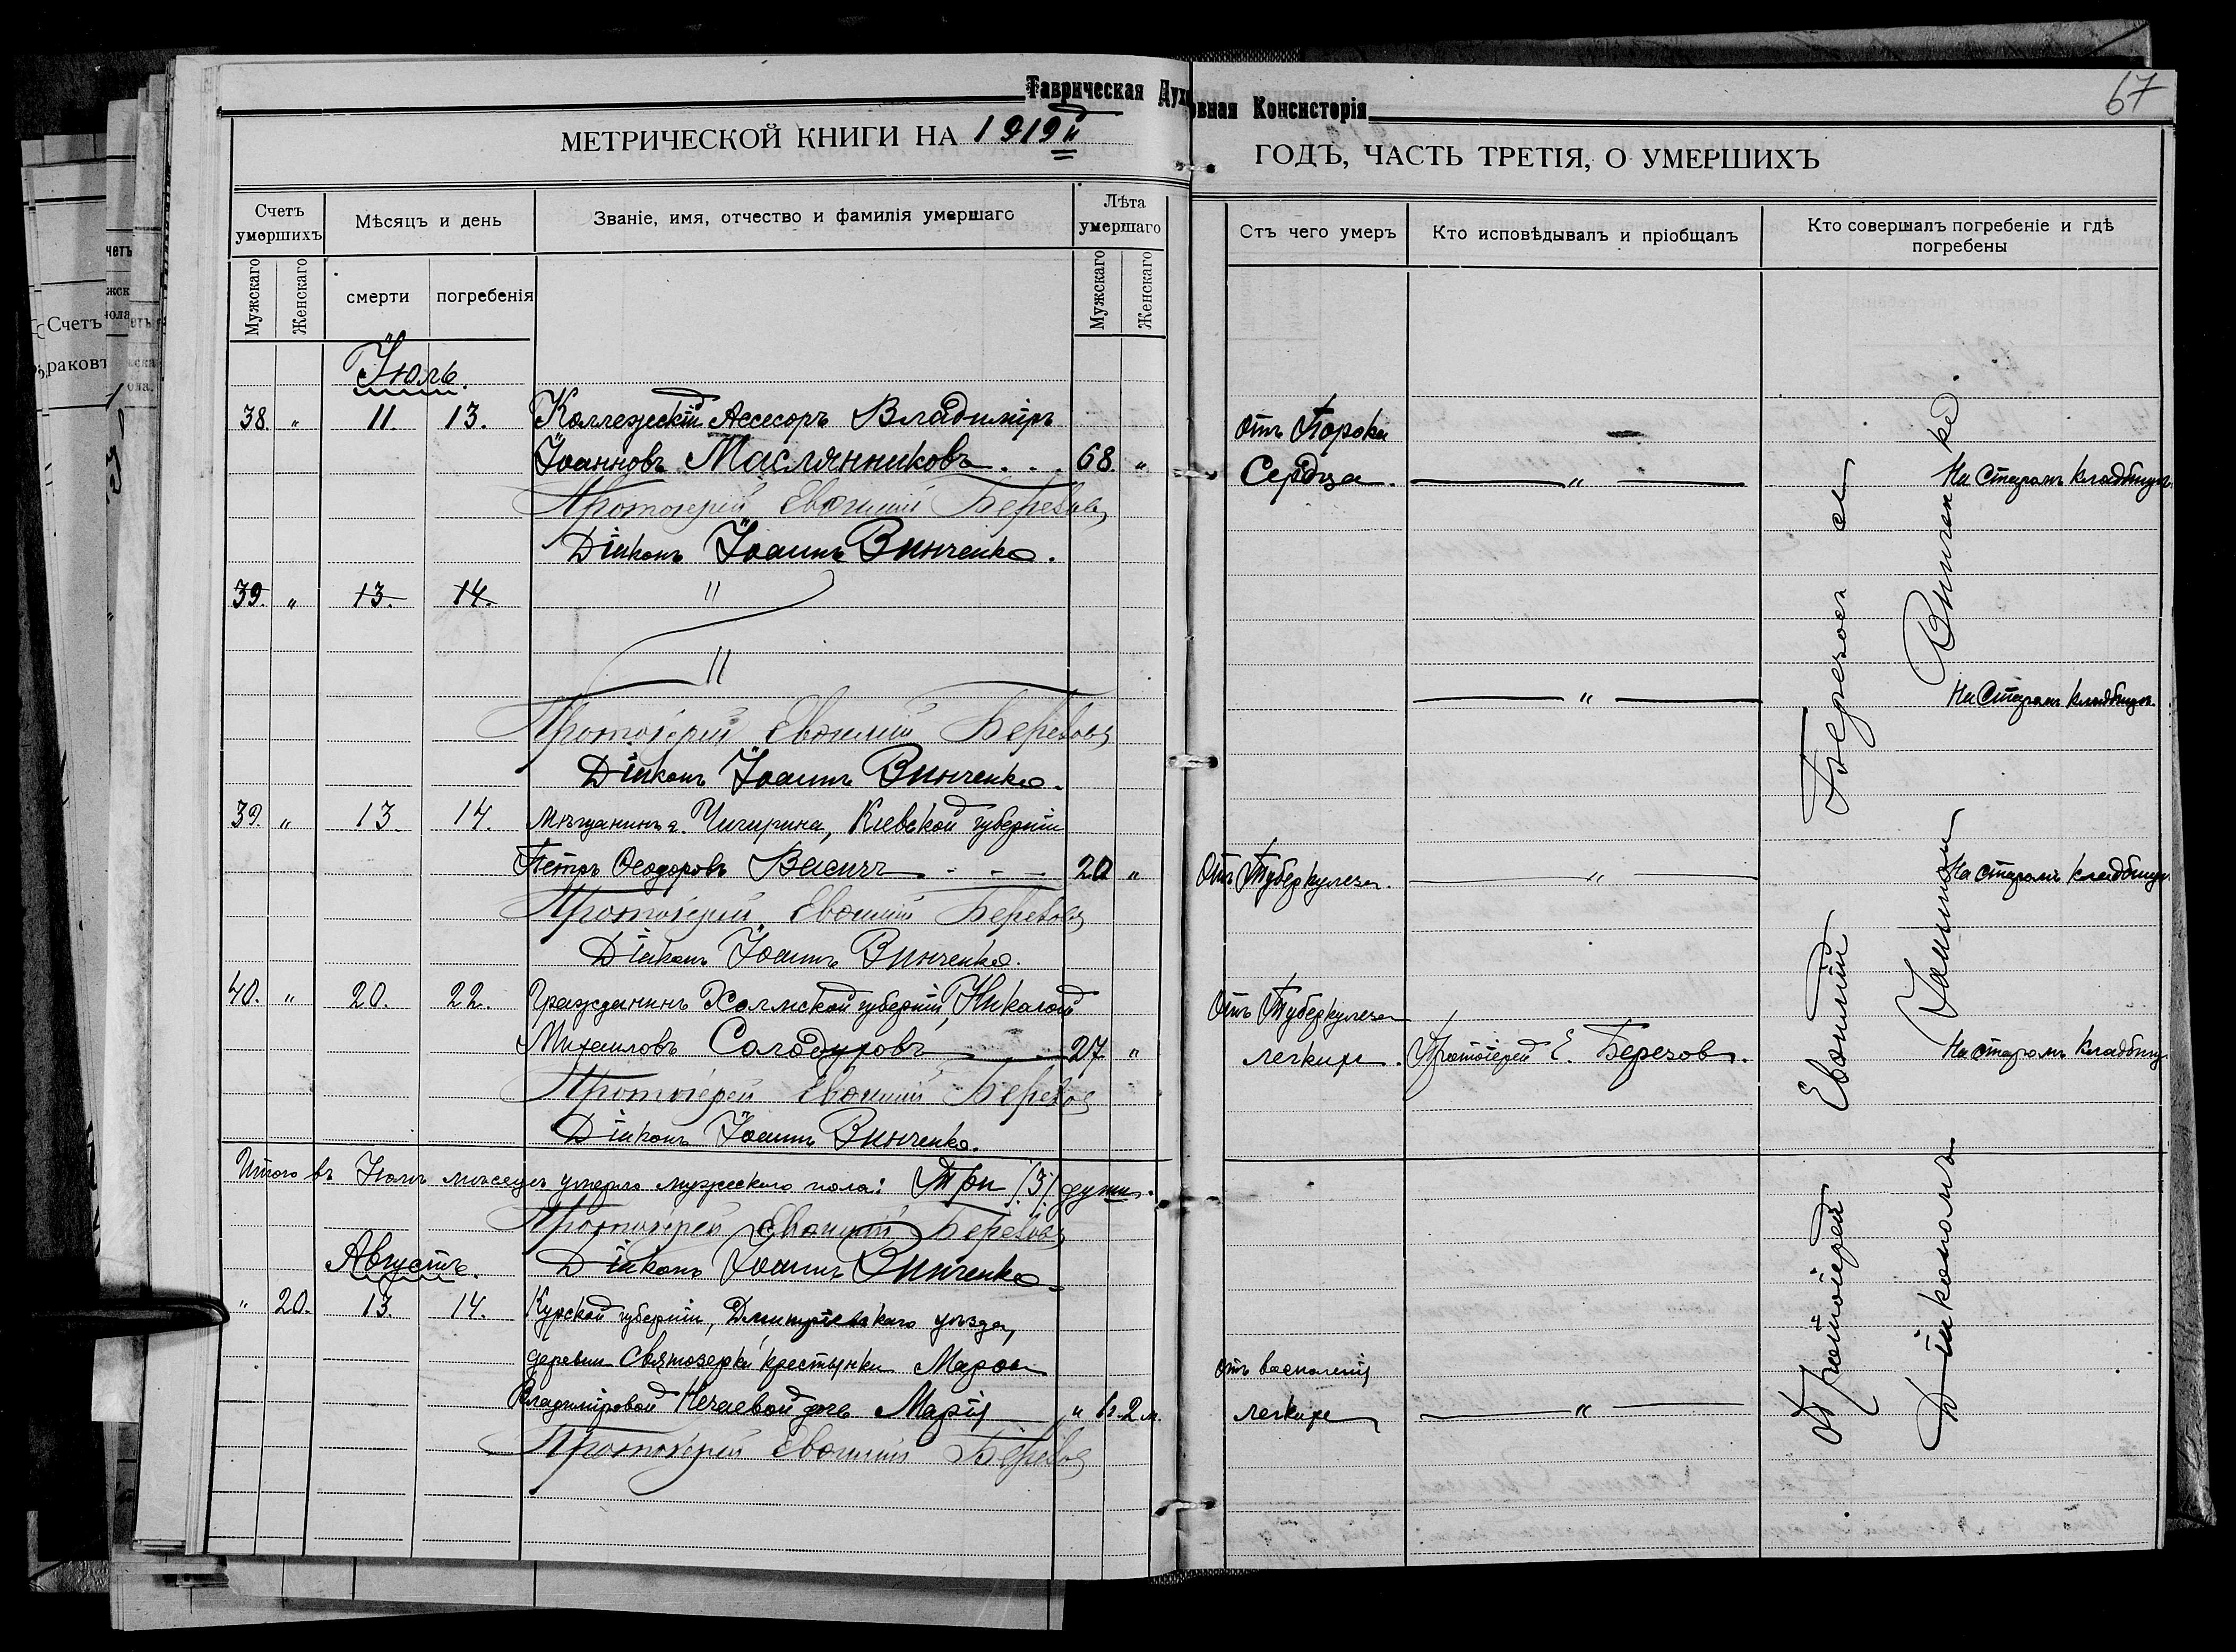 Таврическая Духовная Консисторія
67
МЕТРИЧЕСКОЙ КНИГИ НА 1919й ГОДЪ, ЧАСТЬ ТРЕТІЯ, О УМЕРШИХЪ
Счетъ умершихъ
Мѣсяцъ и день
Званіе, имя, отчество и фамилія умершаго
Лѣта умершаго
Стъ чего умеръ
Кто исповѣдывалъ и пріобщалъ
Кто совершалъ погребеніе и гдѣ погребены
Мужскаго
Женскаго
смерти
погребенія
Мужскаго
Женскаго
Іюль.
38. " 11. 13. Коллежскій Ассесоръ Владиміръ
Іоанновъ Маслянниковъ . . . 68. "
отъ Порока
Сердца. — " —
На Старомъ кладбищѣ
Протоіерей Евѳимій Березовъ
Діаконъ Іоаннъ Винченко.
39. " 13. 14. "
"
— " —
На Старомъ кладбищѣ.
Протоіерей Евѳимій Березовъ
Діаконъ Іоаннъ Винченко.
39. " 13. 14. Мѣщанинъ г. Чигирина, Кіевской губерніи
Петръ Ѳеодоровъ Васичъ - - - 20 "
Отъ Туберкулеза. — " —
На старомъ кладбищѣ
Протоіерей Евѳимій Березовъ
Діаконъ Іоаннъ Винченко.
40. " 20. 22. Гражданинъ Холмской губерніи, Николай
Михаиловъ Солодуховъ — 27 "
Отъ Туберкулеза
легкихъ. Протоіерей Е. Березовъ.
На старомъ кладбищѣ
Протоіерей Евѳимій Березовъ
Діаконъ Іоаннъ Винченко.
Итого въ Іюлѣ мѣсяцѣ умерло мужеского пола: Три /3/ души.
Протоіерей Евѳимій Березовъ
Августъ.
Діаконъ Іоаннъ Винченко
" 20. 13. 14. Курской губерніи, Дмитріевскаго уѣзда,
деревни Святозерки крестьянки Марѳы
Владиміровой Нечаевой дочь Марія " 2 м.
отъ воспаленія
легкихъ — " —
Протоіерей Евѳимій Березовъ
Протоіерей Евѳимій Березовъ съ
Діакономъ Іоанномъ Винченко.
Счетъ
раковъ